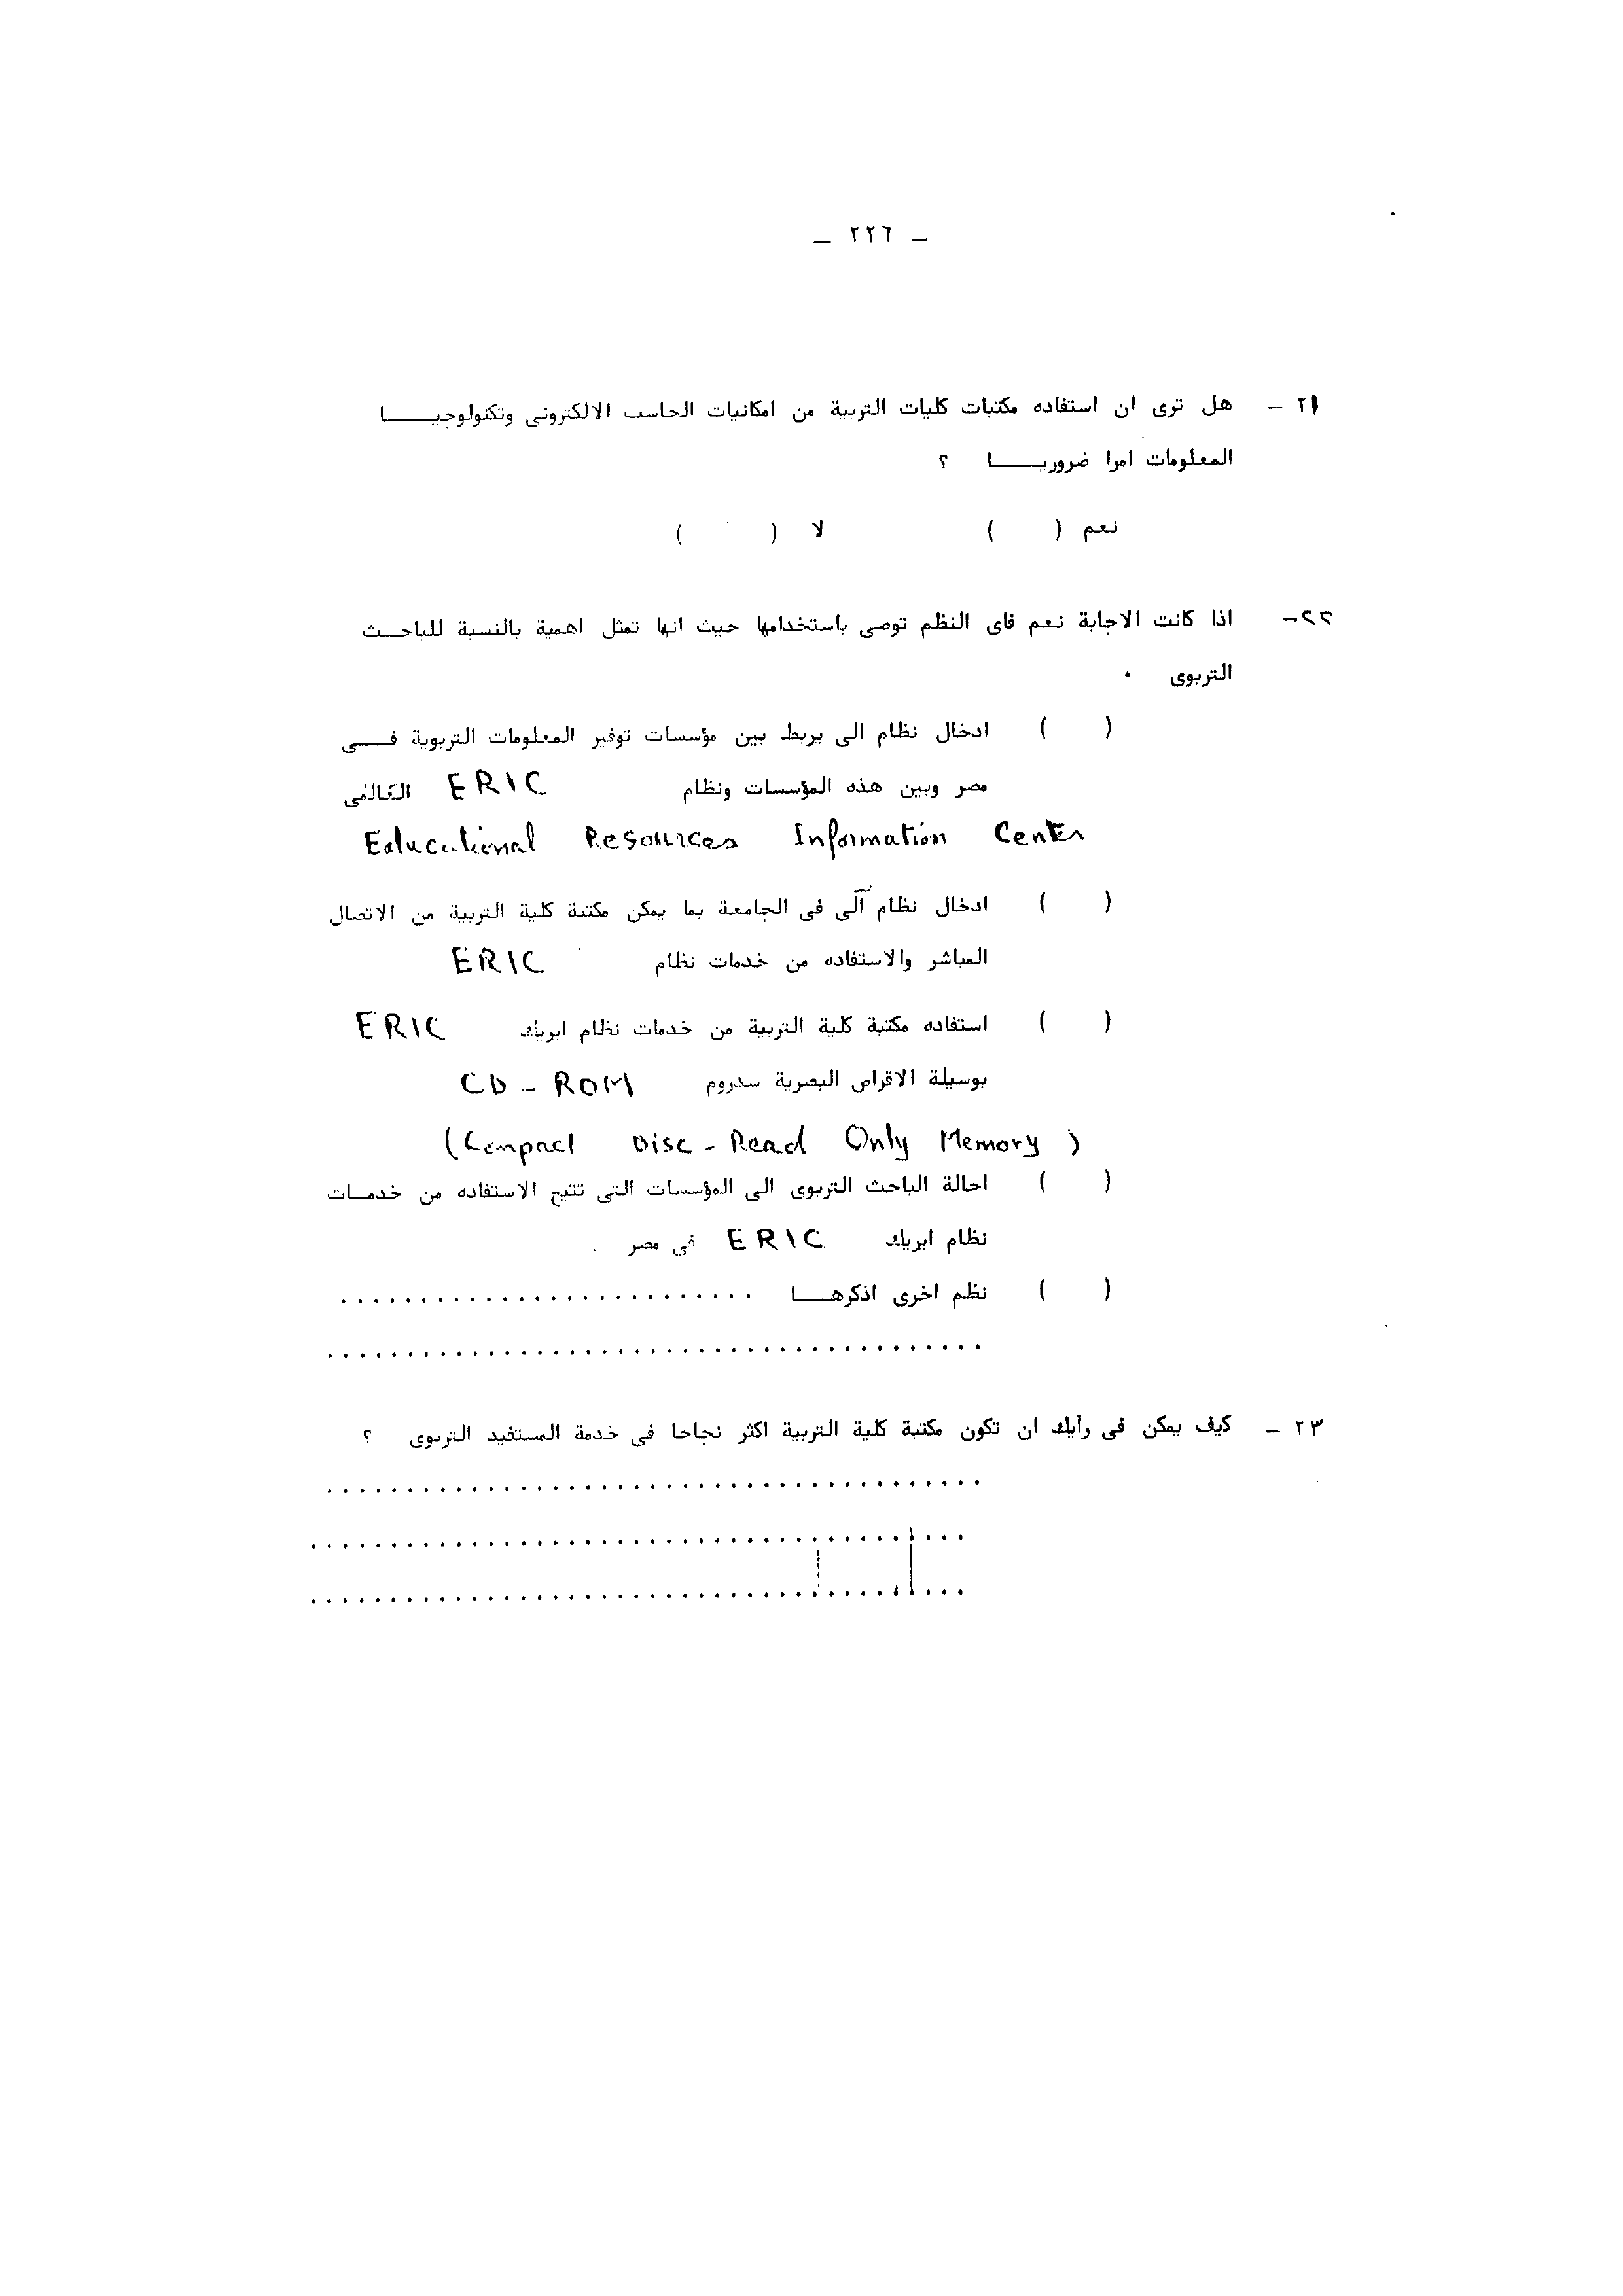 – ٢٢٦ –
٢١ – هل ترى ان استفاده مكتبات كليات التربية من امكانيات الحاسب الالكترونى وتكنولوجيا
المعلومات امرا ضروريا ؟
نعم ( ) لا ( )
٢٢– اذا كانت الاجابة نعم فاى النظم توصى باستخدامها حيث انها تمثل اهمية بالنسبة للباحث
التربوى .
( ) ادخال نظام الى يربط بين مؤسسات توفير المعلومات التربوية فى
مصر وبين هذه المؤسسات ونظام ERIC العالمى
Educational Resources Information Center
( ) ادخال نظام آلى فى الجامعة بما يمكن مكتبة كلية التربية من الاتصال
المباشر والاستفاده من خدمات نظام ERIC
( ) استفاده مكتبة كلية التربية من خدمات نظام ايريك ERIC
بوسيلة الاقراص البصرية سدروم CD - ROM
(Compact Disc - Read Only Memory)
( ) احالة الباحث التربوى الى المؤسسات التى تتيح الاستفاده من خدمات
نظام ايريك ERIC فى مصر .
( ) نظم اخرى اذكرها ..........................
.........................................
٢٣ – كيف يمكن فى رأيك ان تكون مكتبة كلية التربية اكثر نجاحا فى خدمة المستفيد التربوى ؟
.........................................
.........................................
.........................................